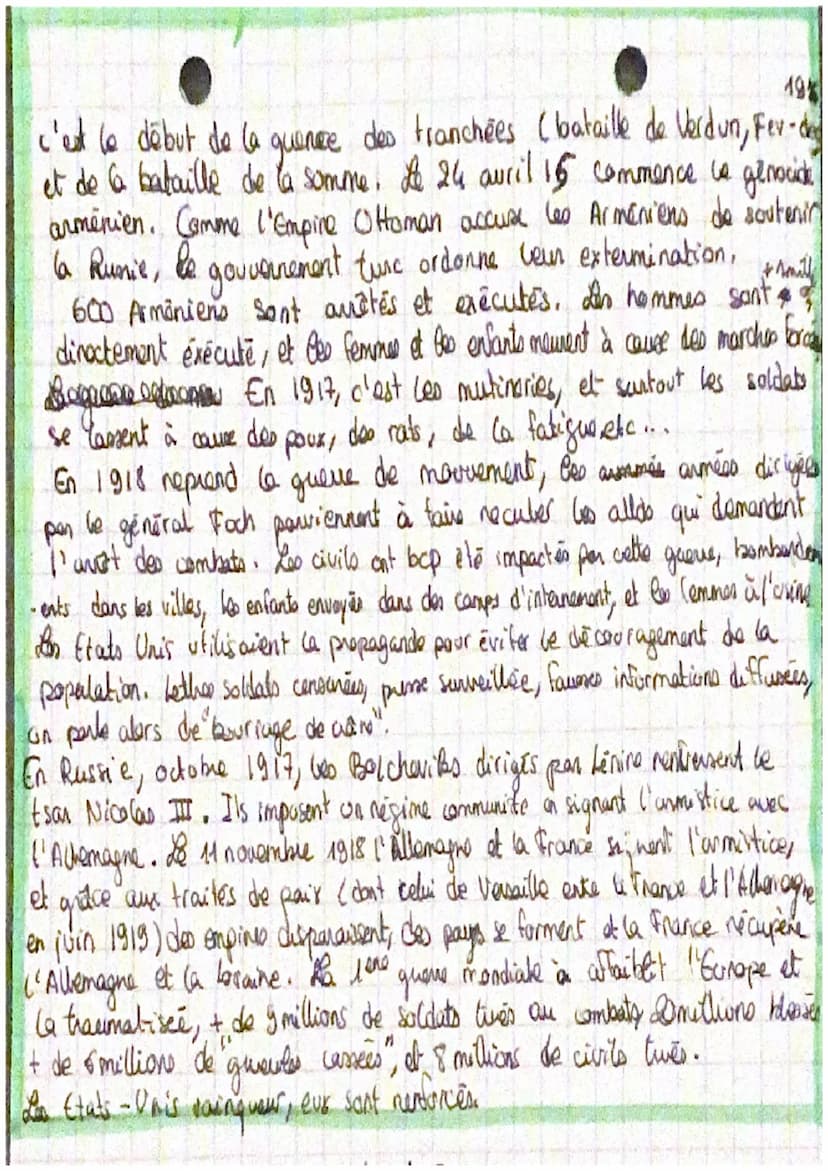 191
c'est le début de la guerre des tranchées (bataille de Verdun, Fev-dec
et de la bataille de la somme. Le 24 avril 15 commence le génocide
arménien. Comme l'Empire Ottoman accuse les Arméniens de soutenir
la Russie, le gouvernement turc ordonne leur extermination.
600 Arméniens sont arrêtés et exécutés. Les hommes sont
directement éxécuté, et les femmes et les enfants meurent à cause des marches forcées
En 1917, c'est les mutineries, et surtout les soldats
se lassent à cause des poux, des rats, de la fatigue, etc...
En 1918 reprend la guerre de mouvement, les armées dirigées
par le général Foch parviennent à faire reculer les allds qui demandent
l'arrêt des combats. Les civils ont bcp été impactés par cette guerre, bombardem
-ents dans les villes, les enfants envoyés dans des camps d'internement, et les femmes à l'usine
Les Etats Unis utilisaient la propagande pour éviter le découragement de la
population. Lettres soldats censurées, presse surveillée, fausses informations diffusées,
on parle alors de "bourrage de crâne".
En Russie, octobre 1917, les Bolcheviks dirigés par Lénine renversent le
tsar Nicolas III. Ils imposent un régime communiste en signant l'armistice avec
l'Allemagne. Le 11 novembre 1918 l'Allemagne et la France signent l'armistice,
et grâce aux traités de paix (dont celui de Versaille entre la France et l'Allemagne
en juin 1919) des empires disparaissent, des pays se forment et la France récupère
l'Allemagne et la Loraine. La 1ère guerre mondiale a affaiblit l'Europe et
la traumatiseé, + de 9 millions de soldats tués au combats, 20 millions blessés
+ de 6 millions de "gueules cassées", et 8 millions de civils tués.
Les Etats-Unis vainqueur, eux sont renforcés.